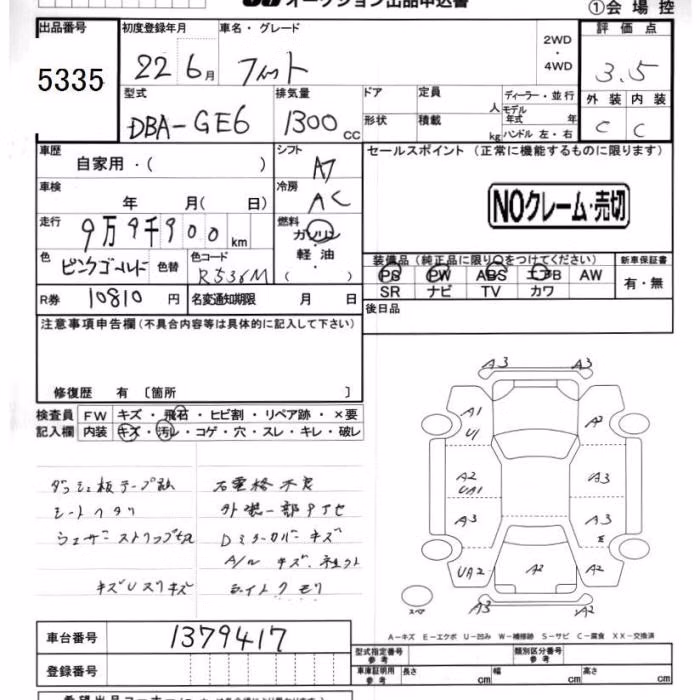 オークション出品申込書
①会場控
出品番号 初度登録年月 車名・グレード 評価点
5335 22 6月 フィット 2WD・4WD 3.5
型式 排気量 ドア 定員 人 ディーラー・並行 外装 内装
DBA-GE6 1300cc 形状 積載 kg モデル年式 年 ハンドル 左・右 C C
車歴 自家用・( ) シフト AT セールスポイント (正常に機能するものに限ります)
車検 年 月( 日) 冷房 AC NOクレーム・売切
走行 9万9千900km 燃料 ガソリン
軽油
( )
色 ピンクゴールド 色替 色コード R536M 装備品(純正品に限り○をつけてください) 新車保証書
PS PW ABS エアB AW 有・無
R券 10810円 名変通知期限 月 日 SR ナビ TV カワ
注意事項申告欄(不具合内容等は具体的に記入して下さい) 後日品
修復歴 有 〔箇所 〕
検査員 FW キズ・飛石・ヒビ割・リペア跡・×要
記入欄 内装 キズ・汚レ・コゲ・穴・スレ・キレ・破レ
A3 A3
A1 A2
U1
A2 A3
UA1
A3 A3
E
UA2 A2 A2
A3 UA2
シートヘタリ
D ミラーカバーキズ
ライトクモリ
A-キズ E-エクボ U-凹み W-補修跡 S-サビ C-腐食 XX-交換済
車台番号 1379417
登録番号
型式指定番号 参考 類別区分番号 参考
車庫証明用 参考 長さ cm 幅 cm 高さ cm